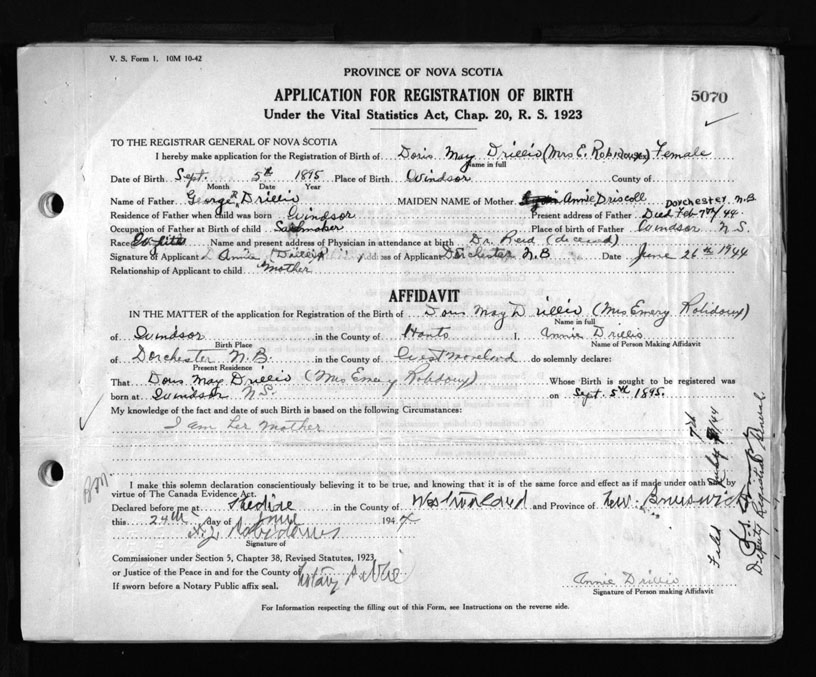 V. S. Form 1. 10M 10-42
PROVINCE OF NOVA SCOTIA
APPLICATION FOR REGISTRATION OF BIRTH
5070
Under the Vital Statistics Act, Chap. 20, R. S. 1923
TO THE REGISTRAR GENERAL OF NOVA SCOTIA
I hereby make application for the Registration of Birth of Doris May Drillio (Mrs E. Robidoux) Female
Name in full
Date of Birth Sept. 5th 1895 Place of Birth Windsor County of
Month Date Year
Name of Father George Drillio MAIDEN NAME of Mother Annie Driscoll Dorchester N.B
Residence of Father when child was born Windsor Present address of Father Died Feb 7th/44
Occupation of Father at Birth of child Sailmaker Place of birth of Father Windsor N.S.
Race Name and present address of Physician in attendance at birth Dr. Reid (deceased)
Signature of Applicant Annie (Drillio) Address of Applicant Dorchester N.B Date June 26th 1944
Relationship of Applicant to child Mother
AFFIDAVIT
IN THE MATTER of the application for Registration of the Birth of Doris May Drillio (Mrs Emery Robidoux)
Name in full
of Windsor in the County of Hants I, Annie Drillio
Birth Place Name of Person Making Affidavit
of Dorchester N.B. in the County of Westmoreland do solemnly declare:
Present Residence
That Doris May Drillio (Mrs Emery Robidoux) Whose Birth is sought to be registered was
born at Windsor N.S. on Sept. 5th 1895.
My knowledge of the fact and date of such Birth is based on the following Circumstances:
I am her mother
I make this solemn declaration conscientiously believing it to be true, and knowing that it is of the same force and effect as if made under oath by
virtue of The Canada Evidence Act.
Declared before me at Shediac in the County of Westmorland and Province of New Brunswick
this 24th day of June 1944
Signature of
Commissioner under Section 5, Chapter 38, Revised Statutes, 1923
or Justice of the Peace in and for the County of Notary Public
If sworn before a Notary Public affix seal.
Annie Drillio
Signature of Person making Affidavit
For Information respecting the filling out of this Form, see Instructions on the reverse side.
Filed July 7th/44
Deputy Registrar General.